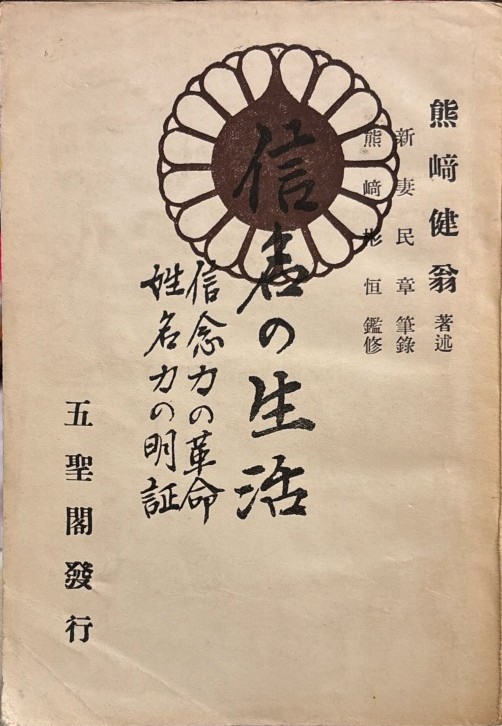 熊﨑健翁 著述
新妻民章 筆錄
熊﨑彬恒 鑑修
信名の生活
信念力の革命
姓名力の明証
五聖閣發行